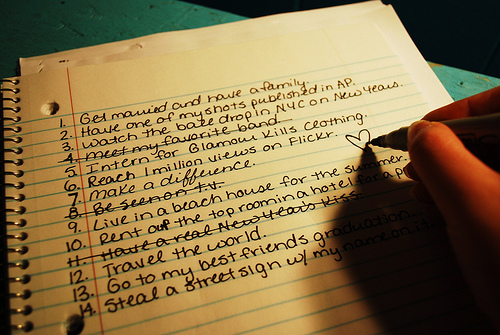 1. Get married and have a family.
2. Have one of my shots published in AP.
3. Watch the baze drop in NYC on New Years.
4. meet my favorite band
5. Intern for Glamour Kills Clothing.
6. Reach 1 million views on Flickr.
7. Make a difference.
8. Be seen on t.v.
9. Live in a beach house for the summer.
10. Rent out the top room in a hotel for a
11. Have a real New Year's kiss.
12. Travel the world.
13. Go to my best friends graduation.
14. Steal a street sign w/ my name on it